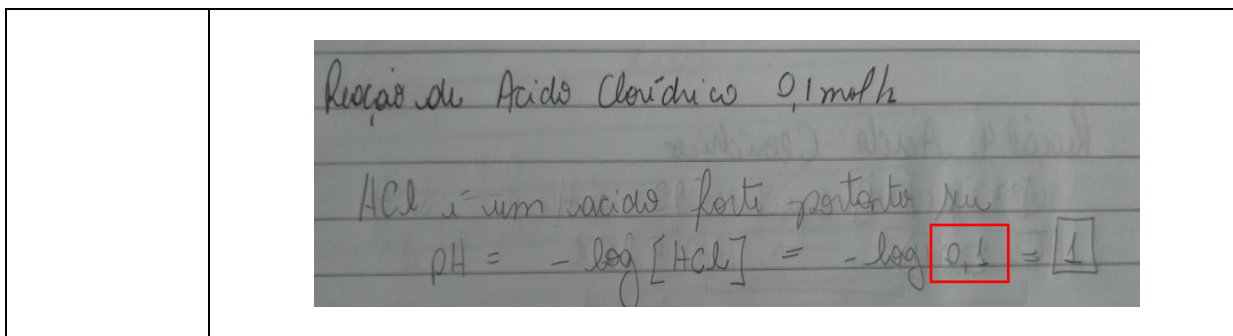 Reação de Acido Clorídrico 0,1 mol/L
HCl é um acido forte portanto seu
pH = - log [HCl] = - log 0,1 = 1